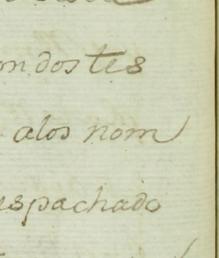 on dos tes
alos nom
spachado